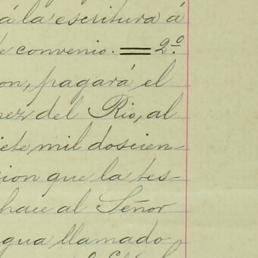 á la escritura á
de convenio. = 2.º
on, pagará el
rez del Rio, al
iete mil doscien-
cion que la tes-
hace al Señor
gua llamado